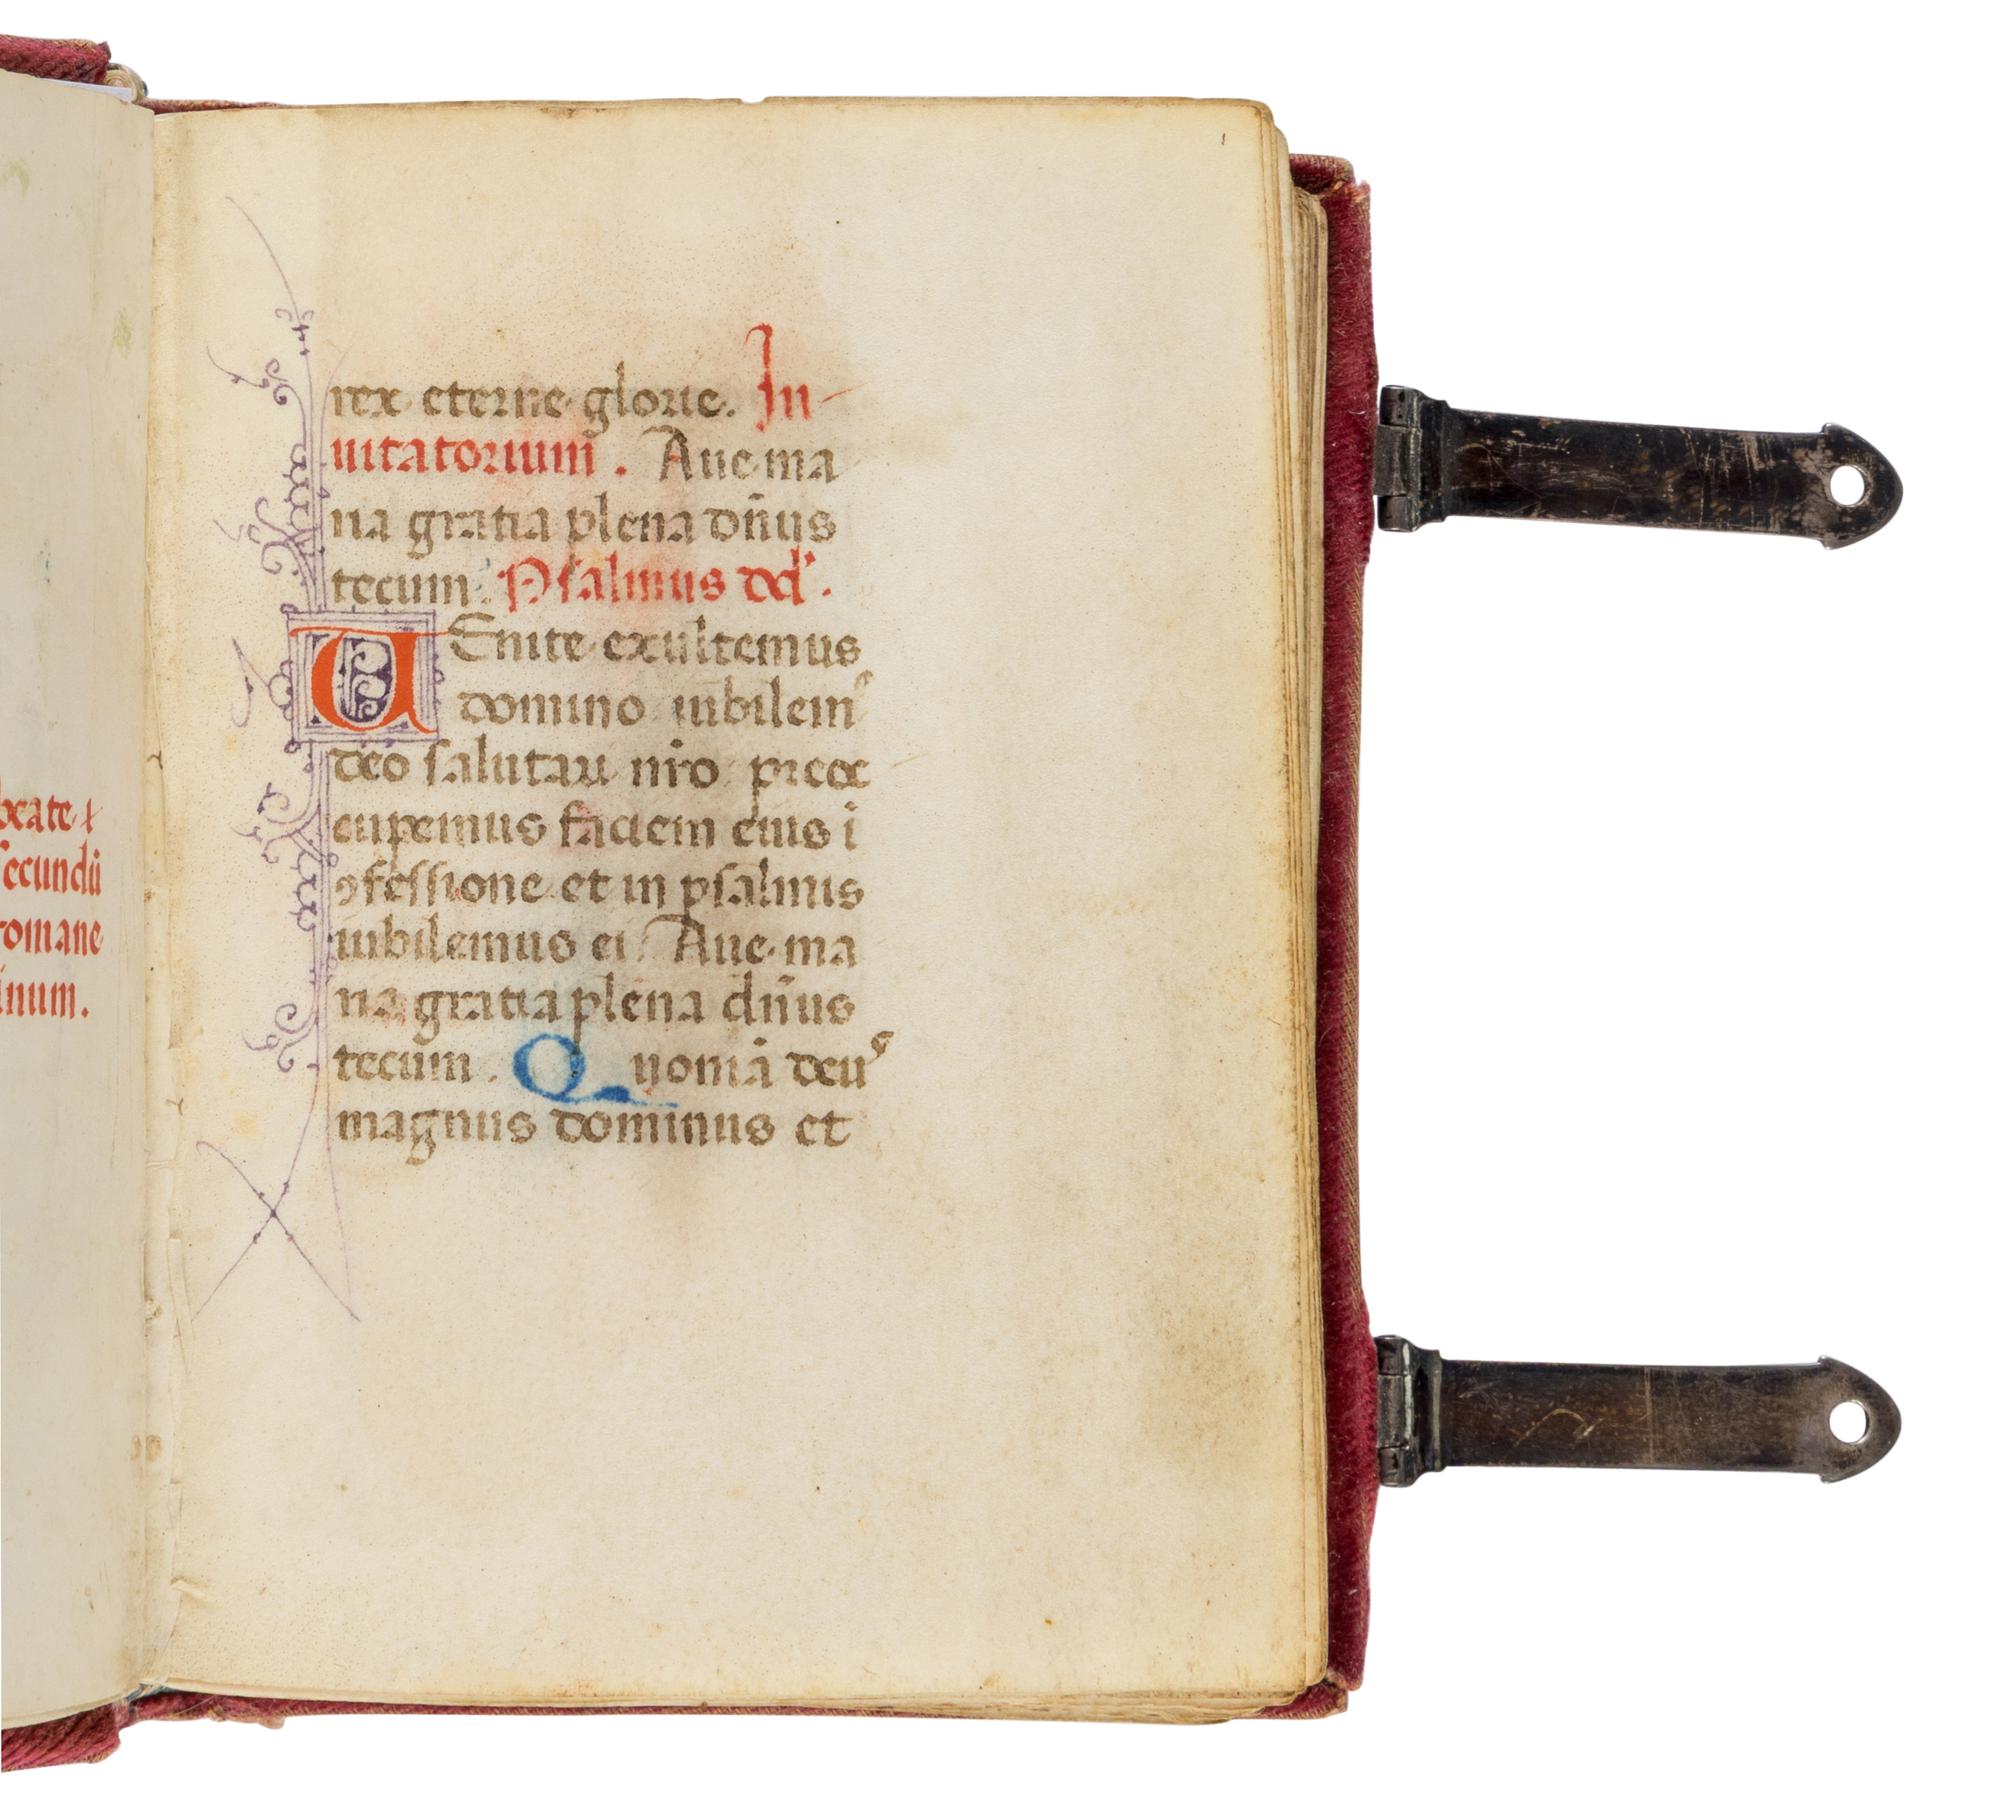 beate &
secundū
romane
inum.
1
rex eterne glorie. In
uitatorium. Aue ma
ria gratia plena dn̄us
tecum. Psalmus dd'.
UEnite exultemus
domino iubilemꝰ
deo salutari nr̄o preoc
cupemus faciem eius i
ꝯfessione et in psalmis
iubilemus ei Aue ma
ria gratia plena dn̄us
tecum. Quoniā deuˢ
magnus dominus et